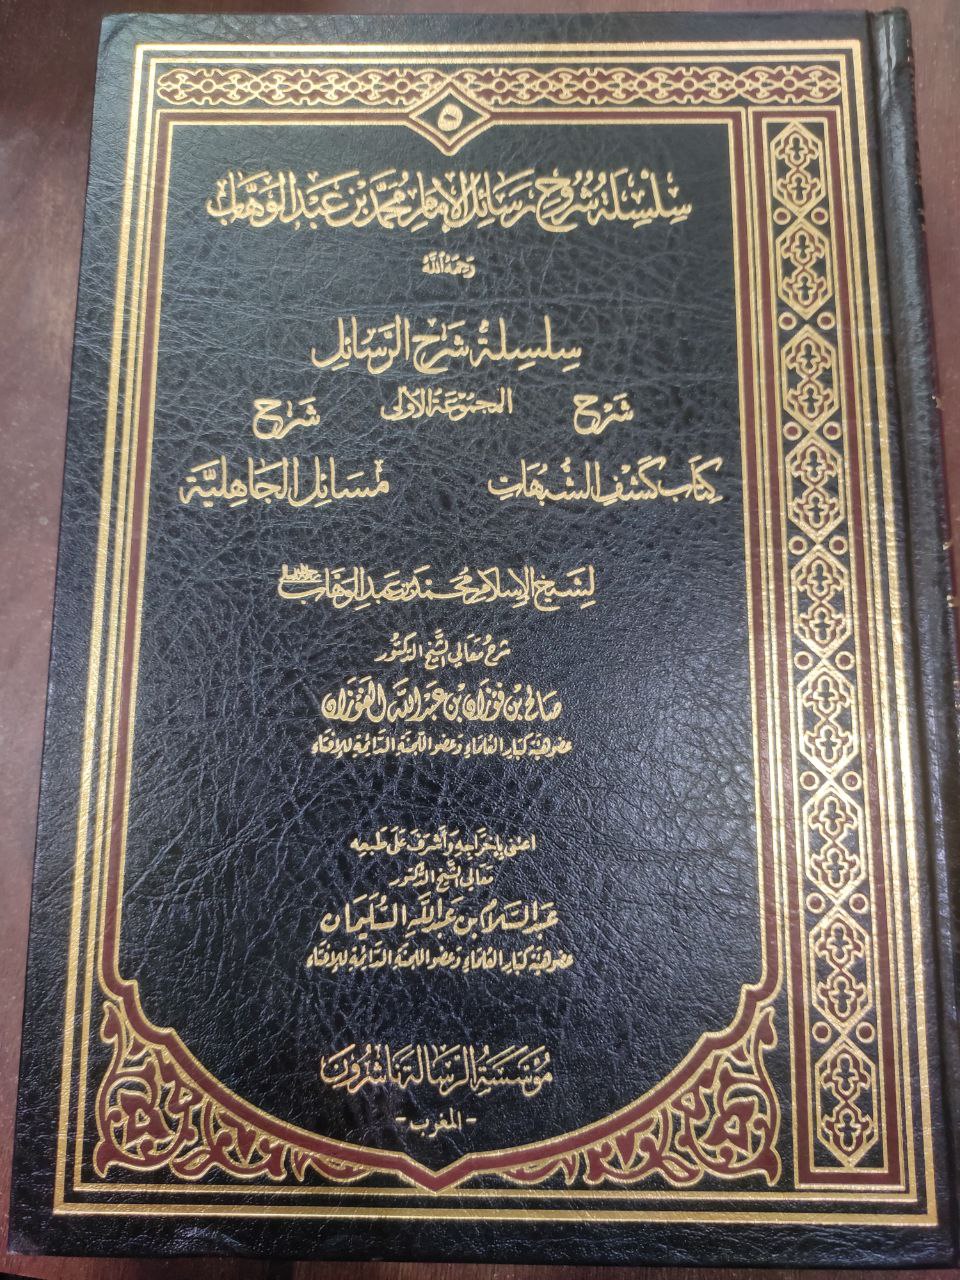 ٥
سلسلة شروح رسائل الإمام محمد بن عبد الوهاب
رحمه الله
سلسلة شرح الرسائل
المجموعة الأولى
شرح
كتاب كشف الشبهات
شرح
مسائل الجاهلية
لشيخ الإسلام محمد بن عبد الوهاب
شرح معالي الشيخ الدكتور
صالح بن فوزان بن عبد الله الفوزان
عضو هيئة كبار العلماء وعضو اللجنة الدائمة للإفتاء
اعتنى بإخراجه وأشرف على طبعه
معالي الشيخ الدكتور
عبد السلام بن عبد الله السليمان
عضو هيئة كبار العلماء وعضو اللجنة الدائمة للإفتاء
مؤسسة الرسالة ناشرون
- المغرب -